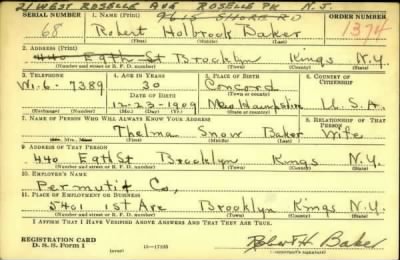 21 WEST ROSELLE AVE ROSELLE PK N.J.
9615 SHORE RD
SERIAL NUMBER 1. NAME (Print) ORDER NUMBER
68 Robert Holbrook Baker 1374
(First) (Middle) (Last)
2. ADDRESS (Print)
440 E 9th St Brooklyn Kings N.Y.
(Number and street or R. F. D. number) (Town) (County) (State)
3. TELEPHONE 4. AGE IN YEARS 5. PLACE OF BIRTH 6. COUNTRY OF CITIZENSHIP
Wi.6-7389 30 Concord
DATE OF BIRTH (Town or county)
12-23-1909 New Hampshire U.S.A.
(Exchange) (Number) (Mo.) (Day) (Yr.) (State or country)
7. NAME OF PERSON WHO WILL ALWAYS KNOW YOUR ADDRESS 8. RELATIONSHIP OF THAT PERSON
Thelma Snow Baker Wife
(Mr., Mrs., Miss) (First) (Middle) (Last)
9. ADDRESS OF THAT PERSON
440 E 9th St Brooklyn Kings N.Y.
(Number and street or R. F. D. number) (Town) (County) (State)
10. EMPLOYER'S NAME
Permutit Co,
11. PLACE OF EMPLOYMENT OR BUSINESS
5401 1st Ave Brooklyn Kings N.Y.
(Number and street or R. F. D. number) (Town) (County) (State)
I AFFIRM THAT I HAVE VERIFIED ABOVE ANSWERS AND THAT THEY ARE TRUE.
REGISTRATION CARD
D. S. S. Form 1 16—17105 Robert H Baker
(Registrant's signature)